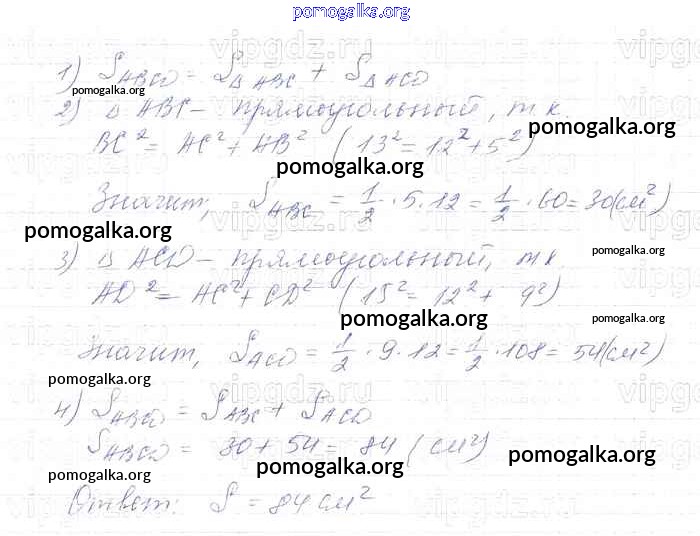 pomogalka.org
1) S_ABCD = S_△ABC + S_△ACD
pomogalka.org
2) △ ABC – прямоугольный, т.к.
pomogalka.org
BC² = AC² + AB² (13² = 12² + 5²)
pomogalka.org
Значит, S_ABC = 1/2 · 5 · 12 = 1/2 · 60 = 30 (см²)
pomogalka.org
3) △ ACD – прямоугольный, т.к.
pomogalka.org
AD² = AC² + CD² (15² = 12² + 9²)
pomogalka.org
pomogalka.org
Значит, S_ACD = 1/2 · 9 · 12 = 1/2 · 108 = 54 (см²)
pomogalka.org
4) S_ABCD = S_ABC + S_ACD
pomogalka.org
S_ABCD = 30 + 54 = 84 (см²)
pomogalka.org
pomogalka.org
pomogalka.org
Ответ: S = 84 см²
vipgdz.ru